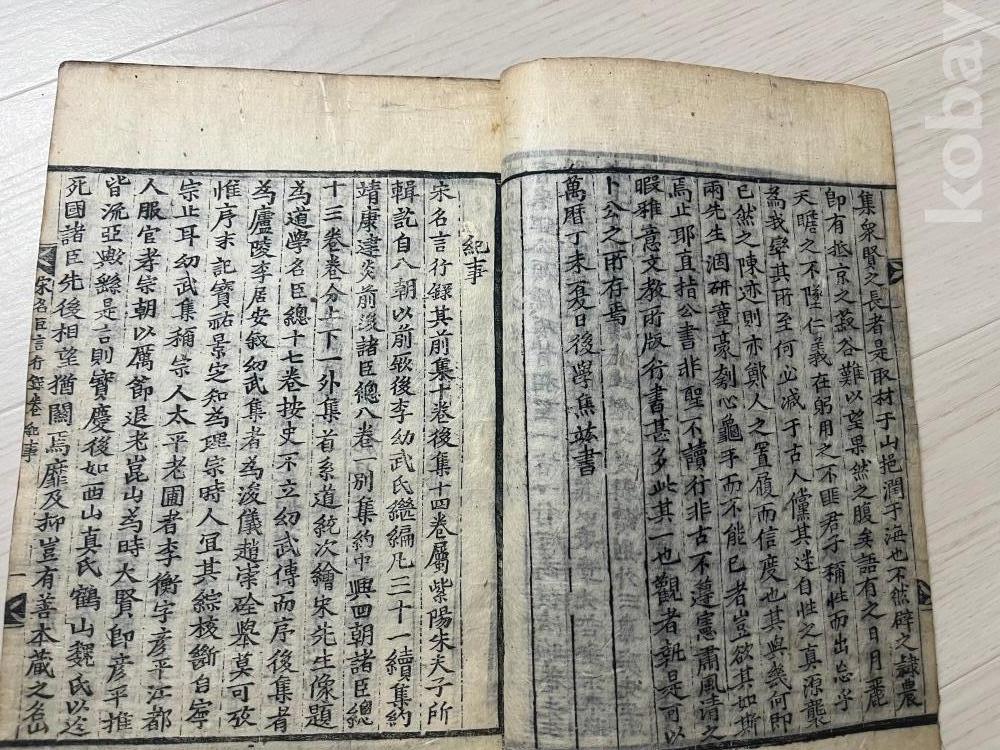 集衆賢之長者是取材于山挹潤于海也不然辟之隷農
即有抵京之蔀谷難以望果然之腹矣語有之日月麗
天瞻之不墜仁義在躬用之不匪君子稱性而出忘乎
為我寧其所至何必減于古人儻其迷自性之真源襲
已然之陳迹則亦鄭人之置履而信度也其與幾何即
兩先生涸研童豪劌心龜手而不能已者豈欲其如斯
焉止耶直指公書非聖不讀行非古不遵憲肅風清之
暇雅意文教所版行書甚多此其一也觀者孰是可以
卜公之所存焉
萬曆丁未夏日後學焦竑書
紀事
宋名言行錄其前集十卷後集十四卷屬紫陽朱夫子所
輯訖自八朝以前厥後李幼武氏繼編凡三十一續集約
靖康建炎前後諸臣總八卷一別集約中興四朝諸臣總
十三卷卷分上下一外集首系道統次繪朱先生像題
為道學名臣總十七卷按史不立幼武傳而序後集者
為廬陵李居安叙幼武集者為浚儀趙崇硂槩莫可攷
惟序末記寶祐景定知為理宗時人宜其綜核斷自寧
宗止耳幼武集稱宗人太平老圃者李衡字彥平江都
人服官孝宗朝以厲節退老崑山為時大賢即彥平推
皆流亞歟繇是言則寶慶後如西山真氏鶴山魏氏以迄
死國諸臣先後相望猶闕焉靡及抑豈有善本藏之名山
宋名臣言行錄卷 紀事 一
kobay